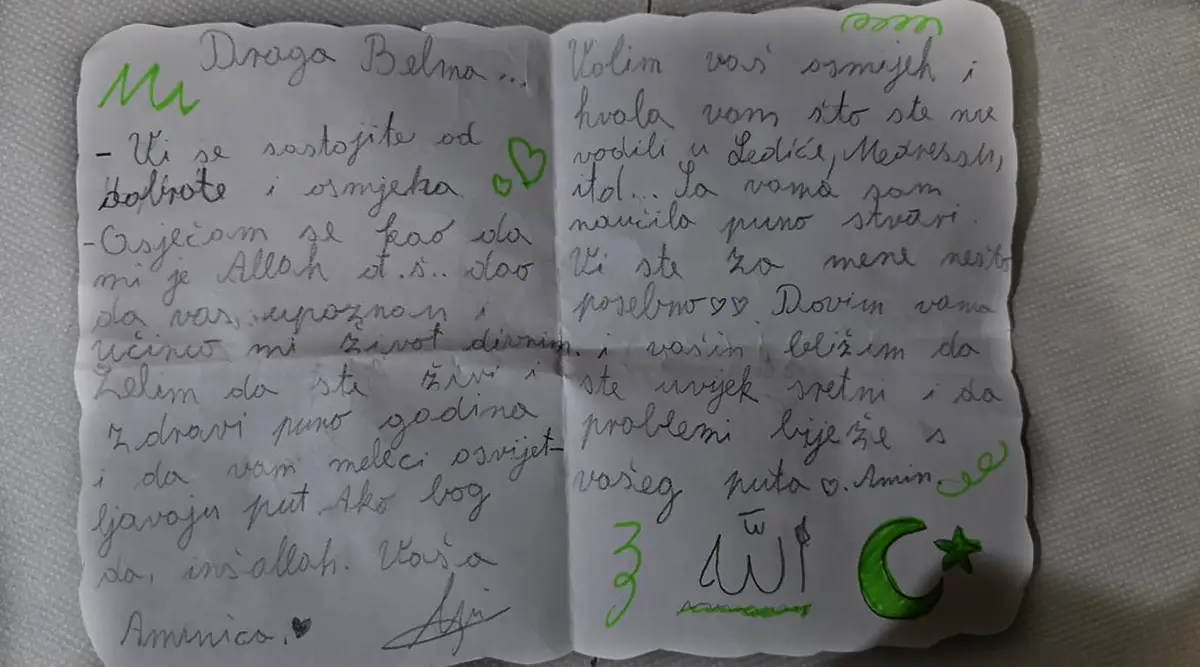 Draga Belma...
- Vi se sastojite od
dobrote i osmjeha
- Osjećam se kao da
mi je Allah dž.š.. dao
da vas, upoznam i
učinio mi život divnim.
Želim da ste živi i
zdravi puno godina
i da vam meleci osvijet-
ljavaju put. Ako bog
da, inš-allah. Vaša
Aminica.♥
Volim vaš osmijeh i
hvala vam što ste me
vodili u Lediće, Medresah,
itd... Sa vama sam
naučila puno stvari.
Vi ste za mene nešto
posebno♡♡. Dovim vama
i vašim bližim da
ste uvijek sretni i da
problemi bježe s
vašeg puta ♡. Amin.
الله